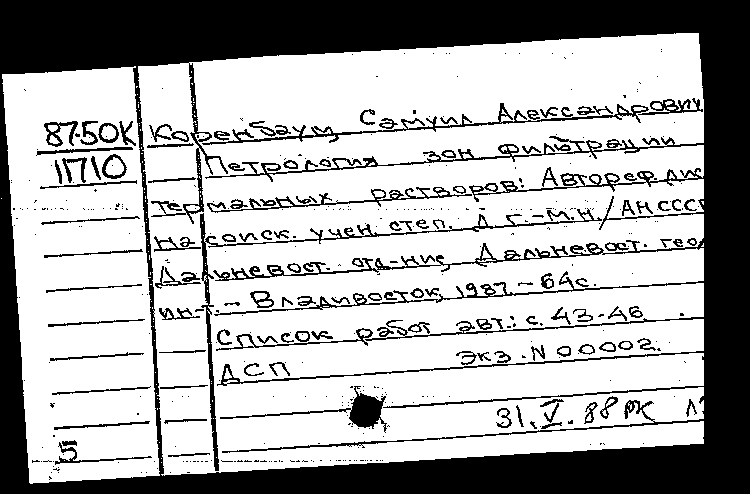 87-50К Коренбаум, Самуил Александрович
11710 Петрология зон фильтрации
термальных растворов: Автореф дис
на соиск. учен. степ. Д г.-м.н./АН СССР
Дальневост. отд-ние, Дальневост. геол
ин-т. - Владивосток, 1987. - 64с.
Список работ авт.: с. 43-46
ДСП Экз. N 00002.
31. V. 88 РК
5